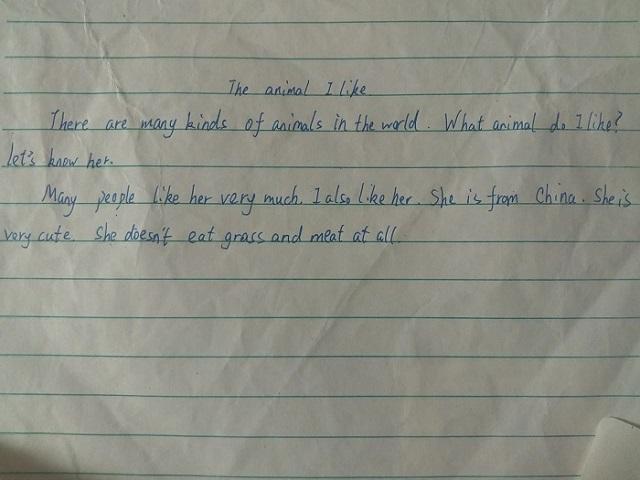 The animal I like
There are many kinds of animals in the world. What animal do I like?
let's know her.
Many people like her very much. I also like her. She is from China. She is
very cute. She doesn't eat grass and meat at all.